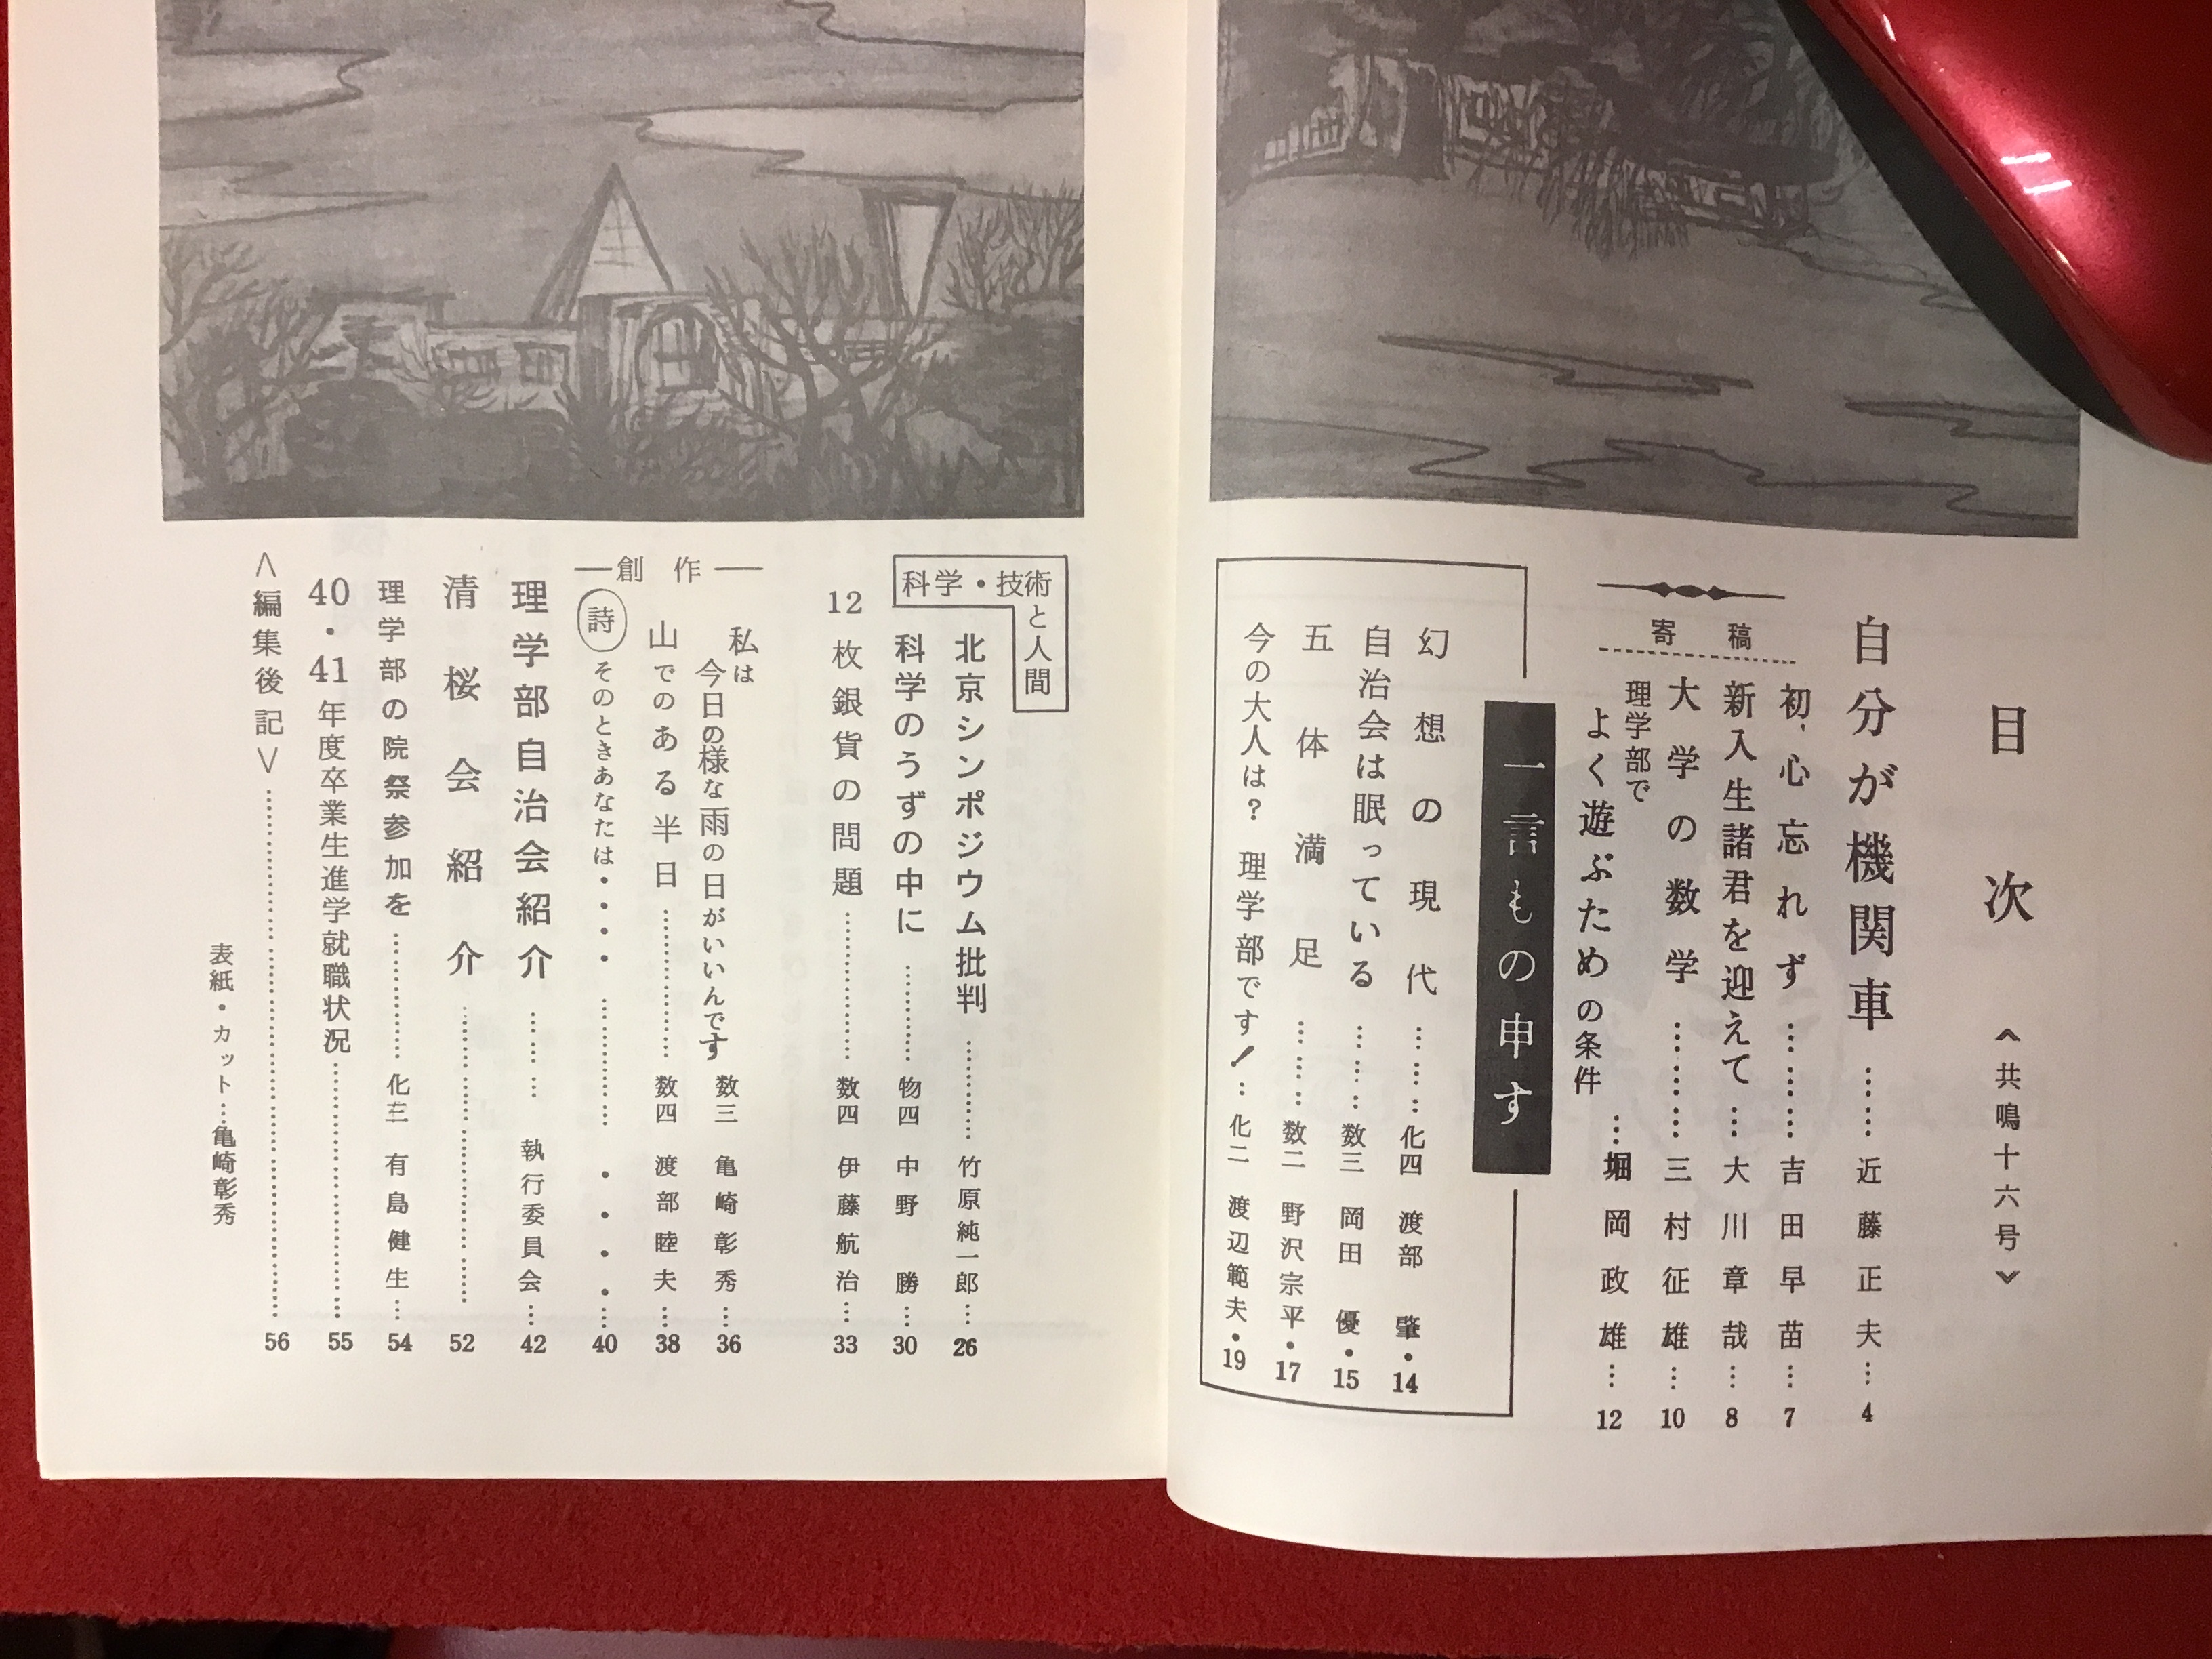 目次 《共鳴十六号》
自分が機関車……近藤正夫…4
寄稿
初心忘れず………吉田早苗…7
新入生諸君を迎えて…大川章哉…8
大学の数学………三村征雄…10
理学部で
よく遊ぶための条件…堀岡政雄…12
一言もの申す
幻想の現代……化四 渡部 肇・14
自治会は眠っている……数三 岡田 優・15
五体満足……数二 野沢宗平・17
今の大人は? 理学部です!…化二 渡辺範夫・19
科学・技術と人間
北京シンポジウム批判…………竹原純一郎…26
科学のうずの中に…………物四 中野 勝…30
12枚銀貨の問題…………数四 伊藤航治…33
―創作―
私は
今日の様な雨の日がいいんです 数三 亀崎彰秀…36
山でのある半日…………数四 渡部睦夫…38
詩 そのときあなたは・・・・…………・・・・…40
理学部自治会紹介……… 執行委員会…42
清桜会紹介…………………52
理学部の院祭参加を…………化三 有島健生…54
40・41年度卒業生進学就職状況…………………55
<編集後記>…………………56
表紙・カット…亀崎彰秀